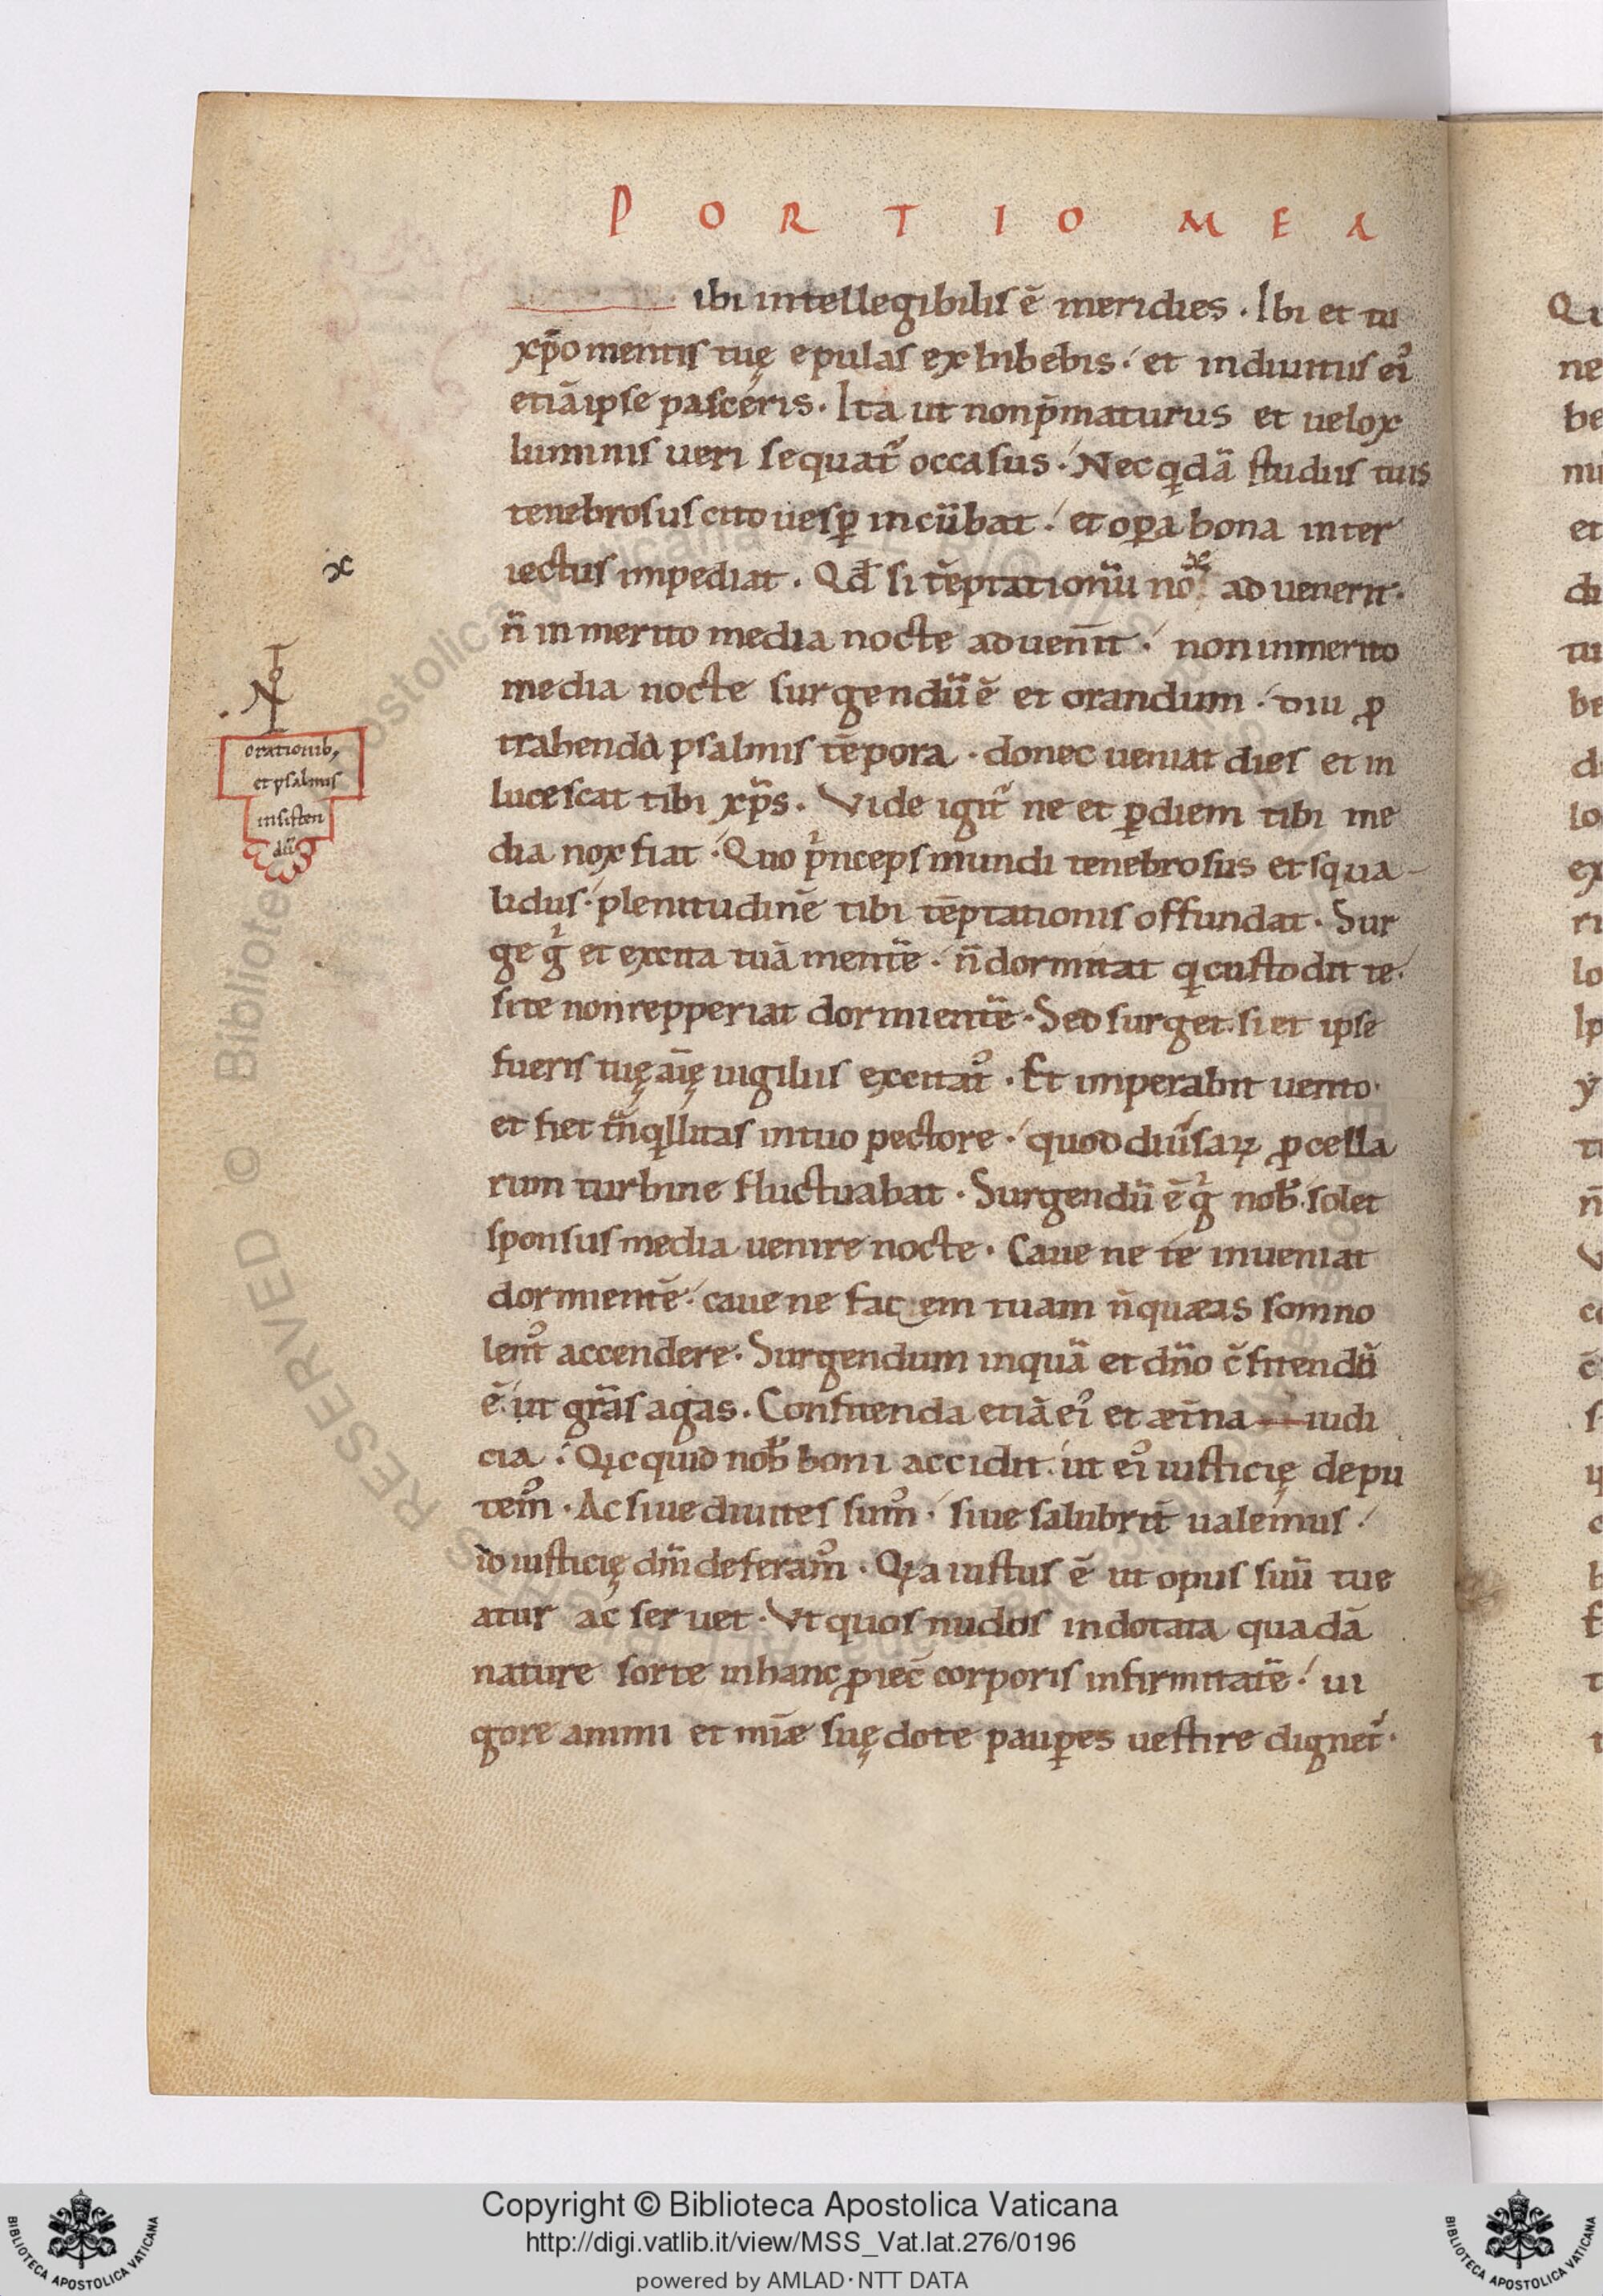 PORTIO MEA
ibi intellegibilis ē meridies . Ibi et tu
xp̄o mentis tuę epulas exhibebis . et indiuitiis ei᾽
etiā ipse pasceris . Ita ut non p̄maturus et uelox
luminis ueri sequat᾽ occasus . Nec qdā studiis tuis
tenebrosus cito uesp̱ incūbat . et op̱a bona inter
iectus impediat . Qd̄ si tēptationū nō ad uenerit .
n̄ inmerito media nocte aduenit̄ . non inmerito
media nocte surgendū ē et orandum . diu ꝓ
trahenda psalmis tēpora . donec ueniat dies et in
lucescat tibi xp̄s . Vide igit᾽ ne et ꝑ diem tibi me
dia nox fiat . Quo p̍nceps mundi tenebrosus et squa-
lidus . plenitudinē tibi tēptationis offundat . Sur
ge g̍ et excita tuā mentē . n̄ dormitat q̍ custodit te .
si te non repperiat dormientē . Sed surget . si et ipse
fueris tuę aīę uigiliis excitat᾽ . Et imperabit uento .
et fiet tn̄q̍llitas in tuo pectore . quod diūsaꝝ ꝓcella
rum turbine fluctuabat . Surgendū ē g̍ nob̄ . solet
sponsus media uenire nocte . Caue ne te inueniat
dormientē . caue ne facem tuam n̄ queas somno
lent᾽ accendere . Surgendum inquā et dn̄o c̄fitendū
ē . ut gr̄as agas . Confitenda etiā ei᾽ et æt̄na iudi
cia . Qicquid nob̄ boni accidit . ut ei᾽ iusticię depu
tem᾽ . Ac siue diuites sum᾽ . siue salubrit̄ ualemus .
id iusticię dn̄i deferam᾽ . Qia iustus ē ut opus suū tue
atur ac seruet . Vt quos nudos indotata quadā
nature sorte in hanc ꝓiec̄ corporis infirmitatē . ui
gore animi et mīæ suę dote paup̱es uestire dignet᾽ .
x
NOT
orationib;
et psalmis
insisten
dū
Copyright © Biblioteca Apostolica Vaticana
http://digi.vatlib.it/view/MSS_Vat.lat.276/0196
powered by AMLAD·NTT DATA
BIBLIOTECA APOSTOLICA VATICANA
BIBLIOTECA APOSTOLICA VATICANA